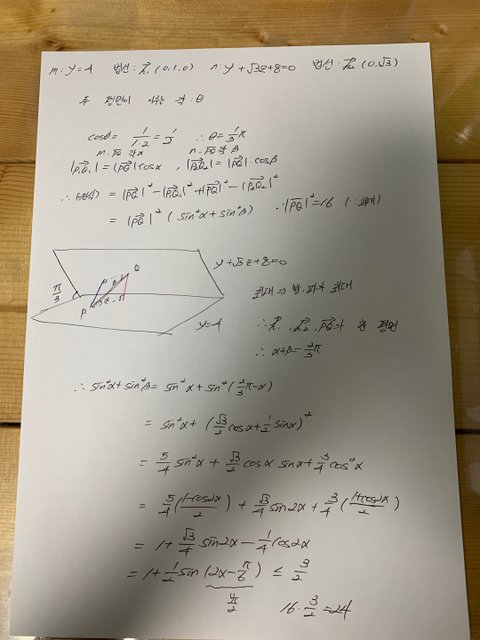 m: y=4 법선: h₁ (0,1,0) n: y+√3z+8=0 법선: h₂ (0,√3)
두 평면이 이루는 각: θ
cosθ = 1/1·2 = 1/2 ∴ θ = 1/3π
m, PQ 각 α n, PQ 각 β
|P₁Q₁| = |PQ| cosα , |P₂Q₂| = |PQ| cosβ
∴ = |PQ|² - |P₁Q₁|² + |PQ|² - |P₂Q₂|²
= |PQ|² (sin²α + sin²β) ∴ |PQ|² = 16 (∵최대)
y+√3z+8=0
π/3
Q
P
y=4
최대 ⇒ α, β가 최대
∴ h₁, h₂, PQ가 한 평면
∴ α+β = 2/3π
∴ sin²α + sin²β = sin²α + sin²(2/3π-α)
= sin²α + (√3/2 cosα + 1/2 sinα)²
= 5/4 sin²α + √3/2 cosα · sinα + 3/4 cos²α
= 5/4 (1-cos2α/2) + √3/4 sin2α + 3/4 (1+cos2α/2)
= 1 + √3/4 sin2α - 1/4 cos2α
= 1 + 1/2 sin (2α - π/6) ≤ 3/2
π/2
16 · 3/2 = 24